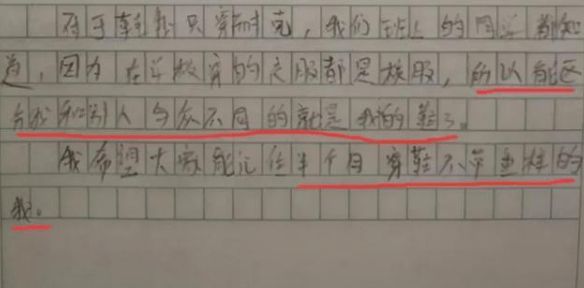 对于鞋我只穿耐克，我们班上的同学都知
道，因为在学校穿的衣服都是校服，所以能区
分我和别人与众不同的就是我的鞋了。
我希望大家能记住半个月穿鞋不带重样的
我。